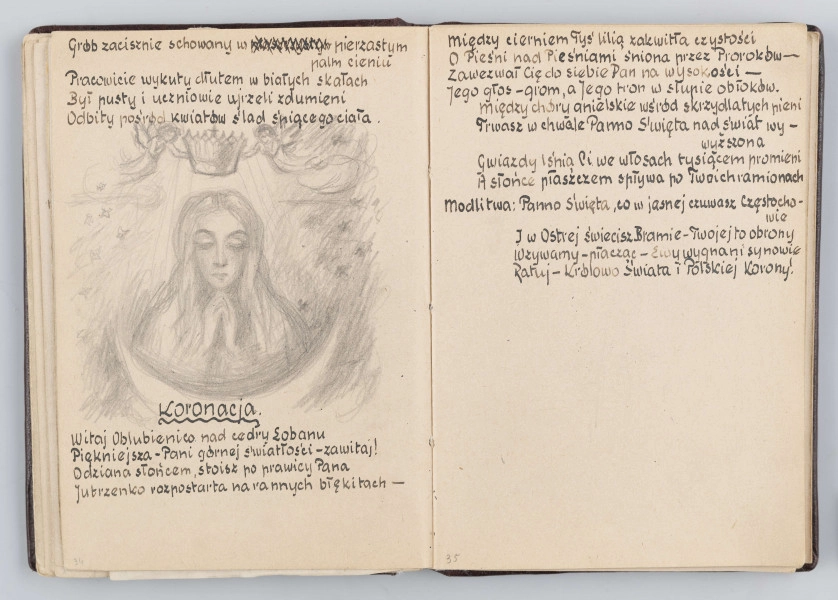 Grób zacisznie schowany w pierzastym
palm cieniu
Pracowicie wykuty dłutem w białych skałach
Był pusty i uczniowie ujrzeli zdumieni
Odbity pośród kwiatów ślad śpiącego ciała.
Koronacja.
Witaj Oblubienico nad cedry Łobanu
Piękniejsza - Pani górnej światłości - zawitaj!
Odziana słońcem, stoisz po prawicy Pana
Jutrzenko rozpostarta na rannych błękitach —
34
Między cierniem Tyś lilią zakwitła czystości
O Pieśni nad Pieśniami śniona przez Proroków —
Zawezwał Cię do siebie Pan na wysokości —
Jego głos - grom, a Jego tron w słupie obłoków.
Między chóry anielskie wśród skrzydlatych pieni
Trwasz w chwale Panno Święta nad świat wy-
wyższona
Gwiazdy lśnią Ci we włosach tysiącem promieni
A słońce płaszczem spływa po Twoich ramionach
Modlitwa: Panno Święta, co w jasnej czuwasz Częstocho-
wie
I w Ostrej świecisz Bramie - Twojej to obrony
Wzywamy - płacząc - Ewy wygnani synowie
Ratuj - Królowo Świata i Polskiej Korony!
35